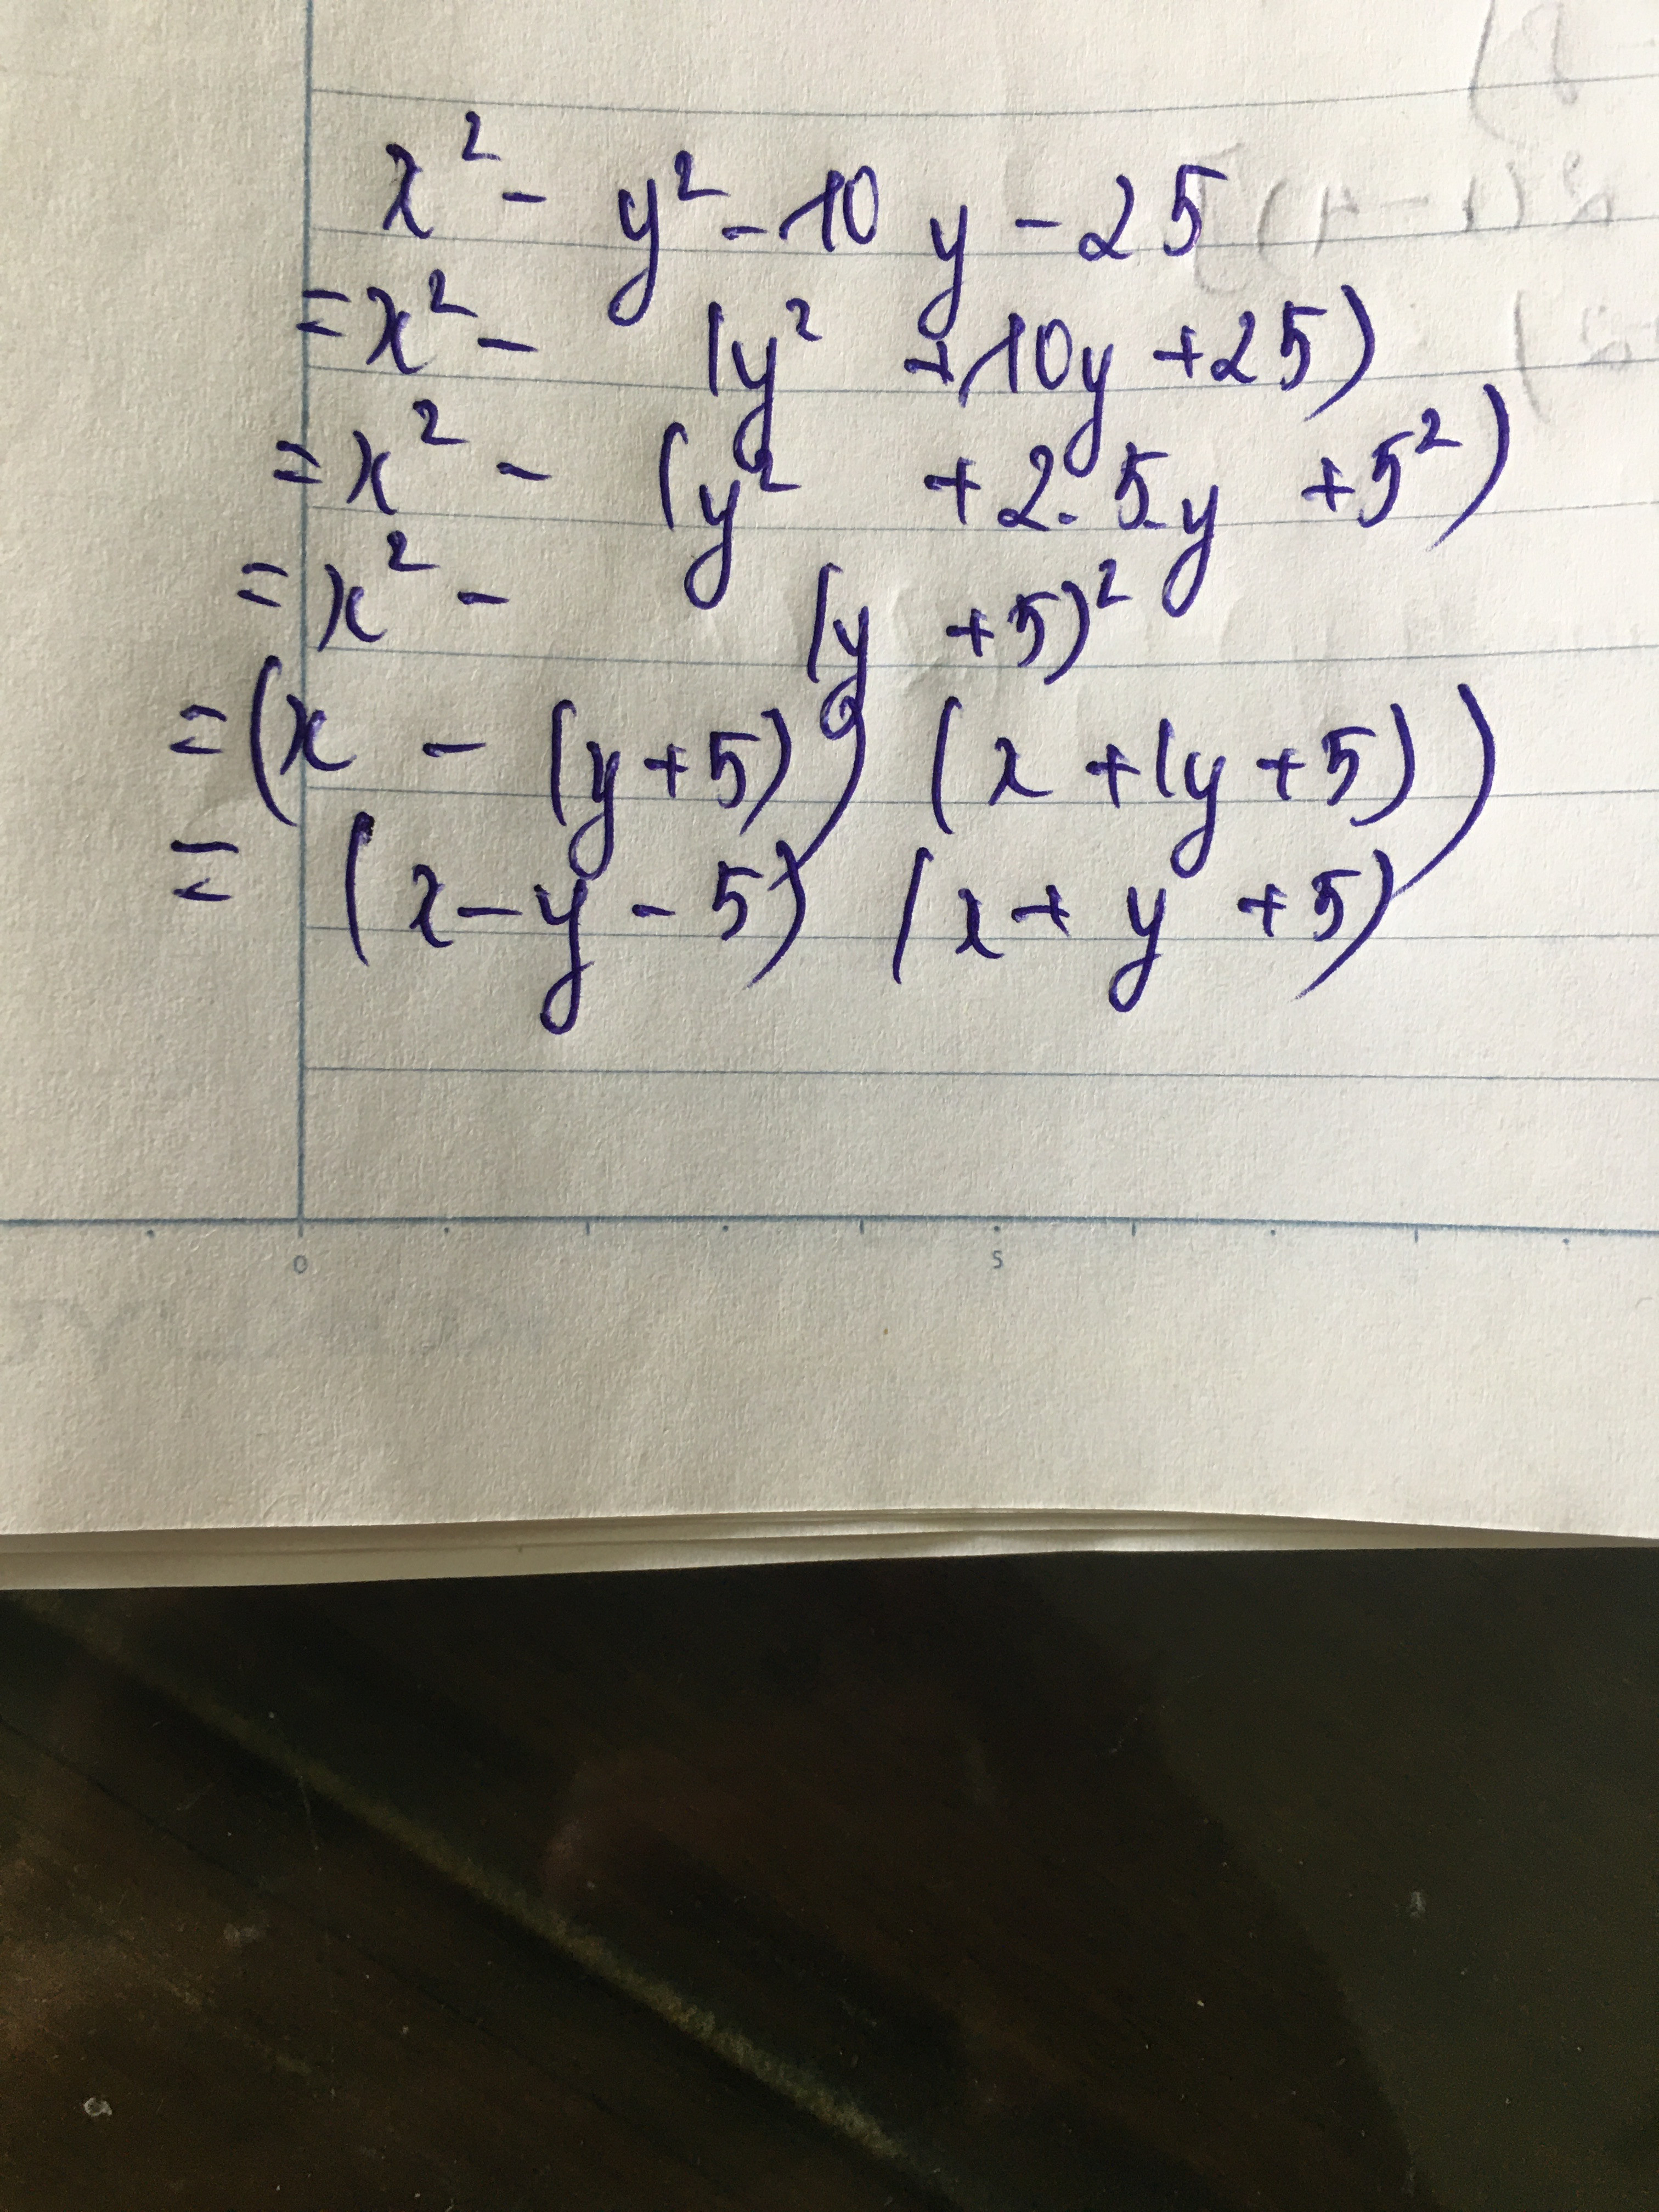 x² - y² - 10y - 25
= x² - (y² + 10y + 25)
= x² - (y² + 2.5.y + 5²)
= x² - (y + 5)²
= (x - (y + 5)) (x + (y + 5))
= (x - y - 5) (x + y + 5)
0 5